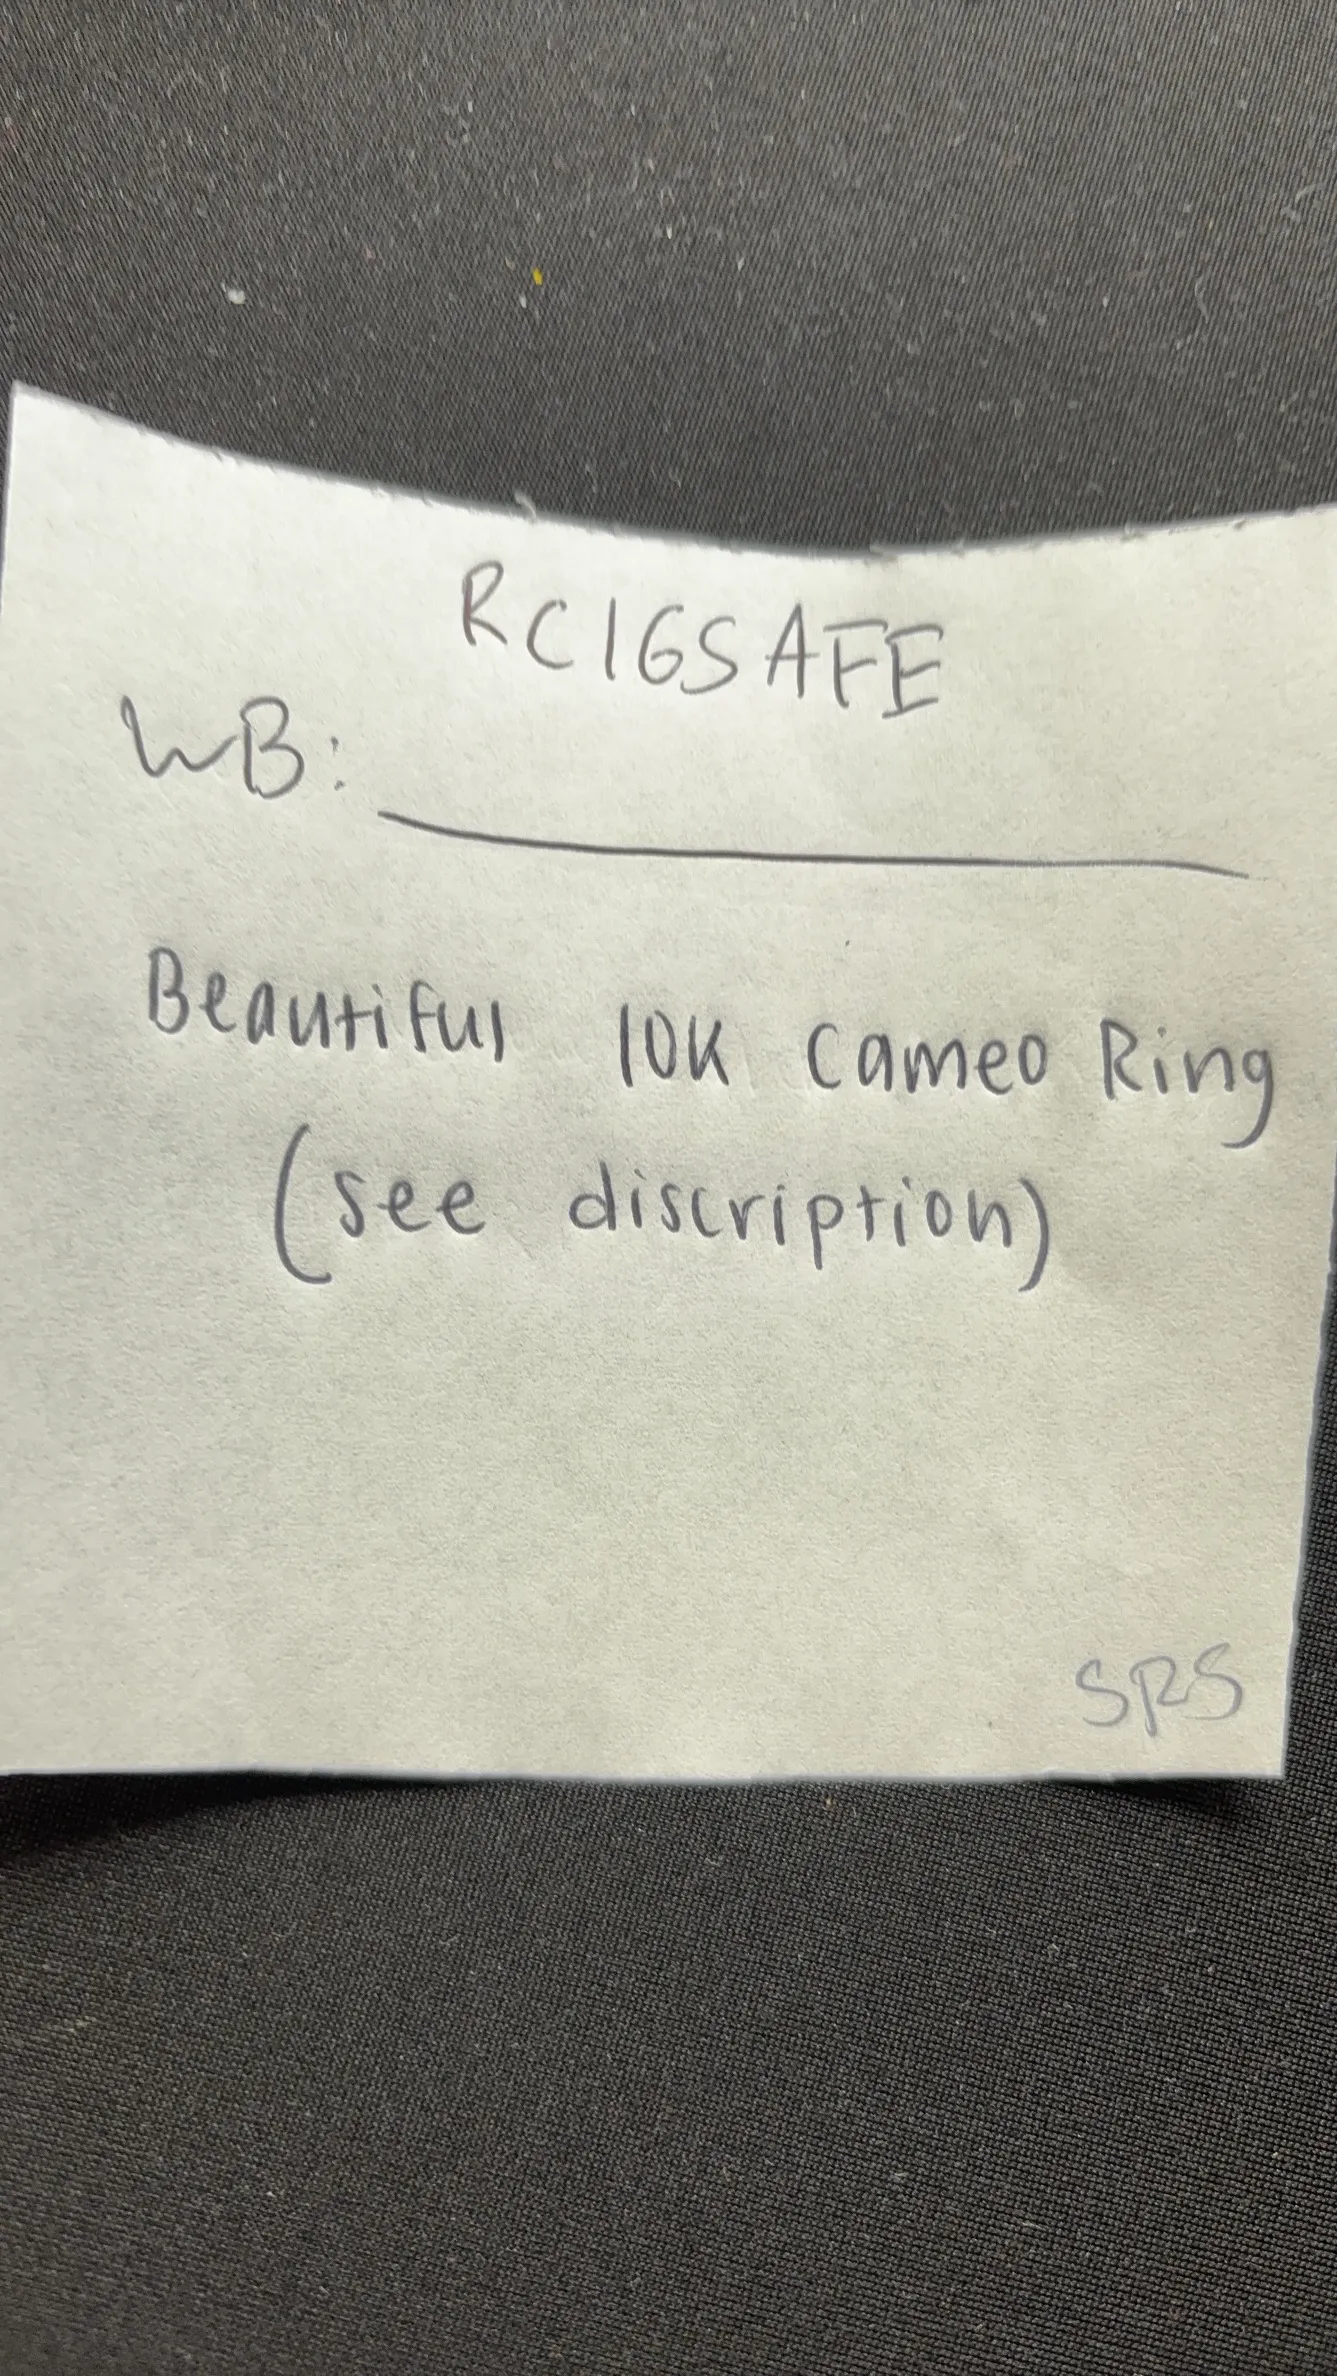 RC16SAFE
WB:
Beautiful 10K Cameo Ring
(see discription)
SRS